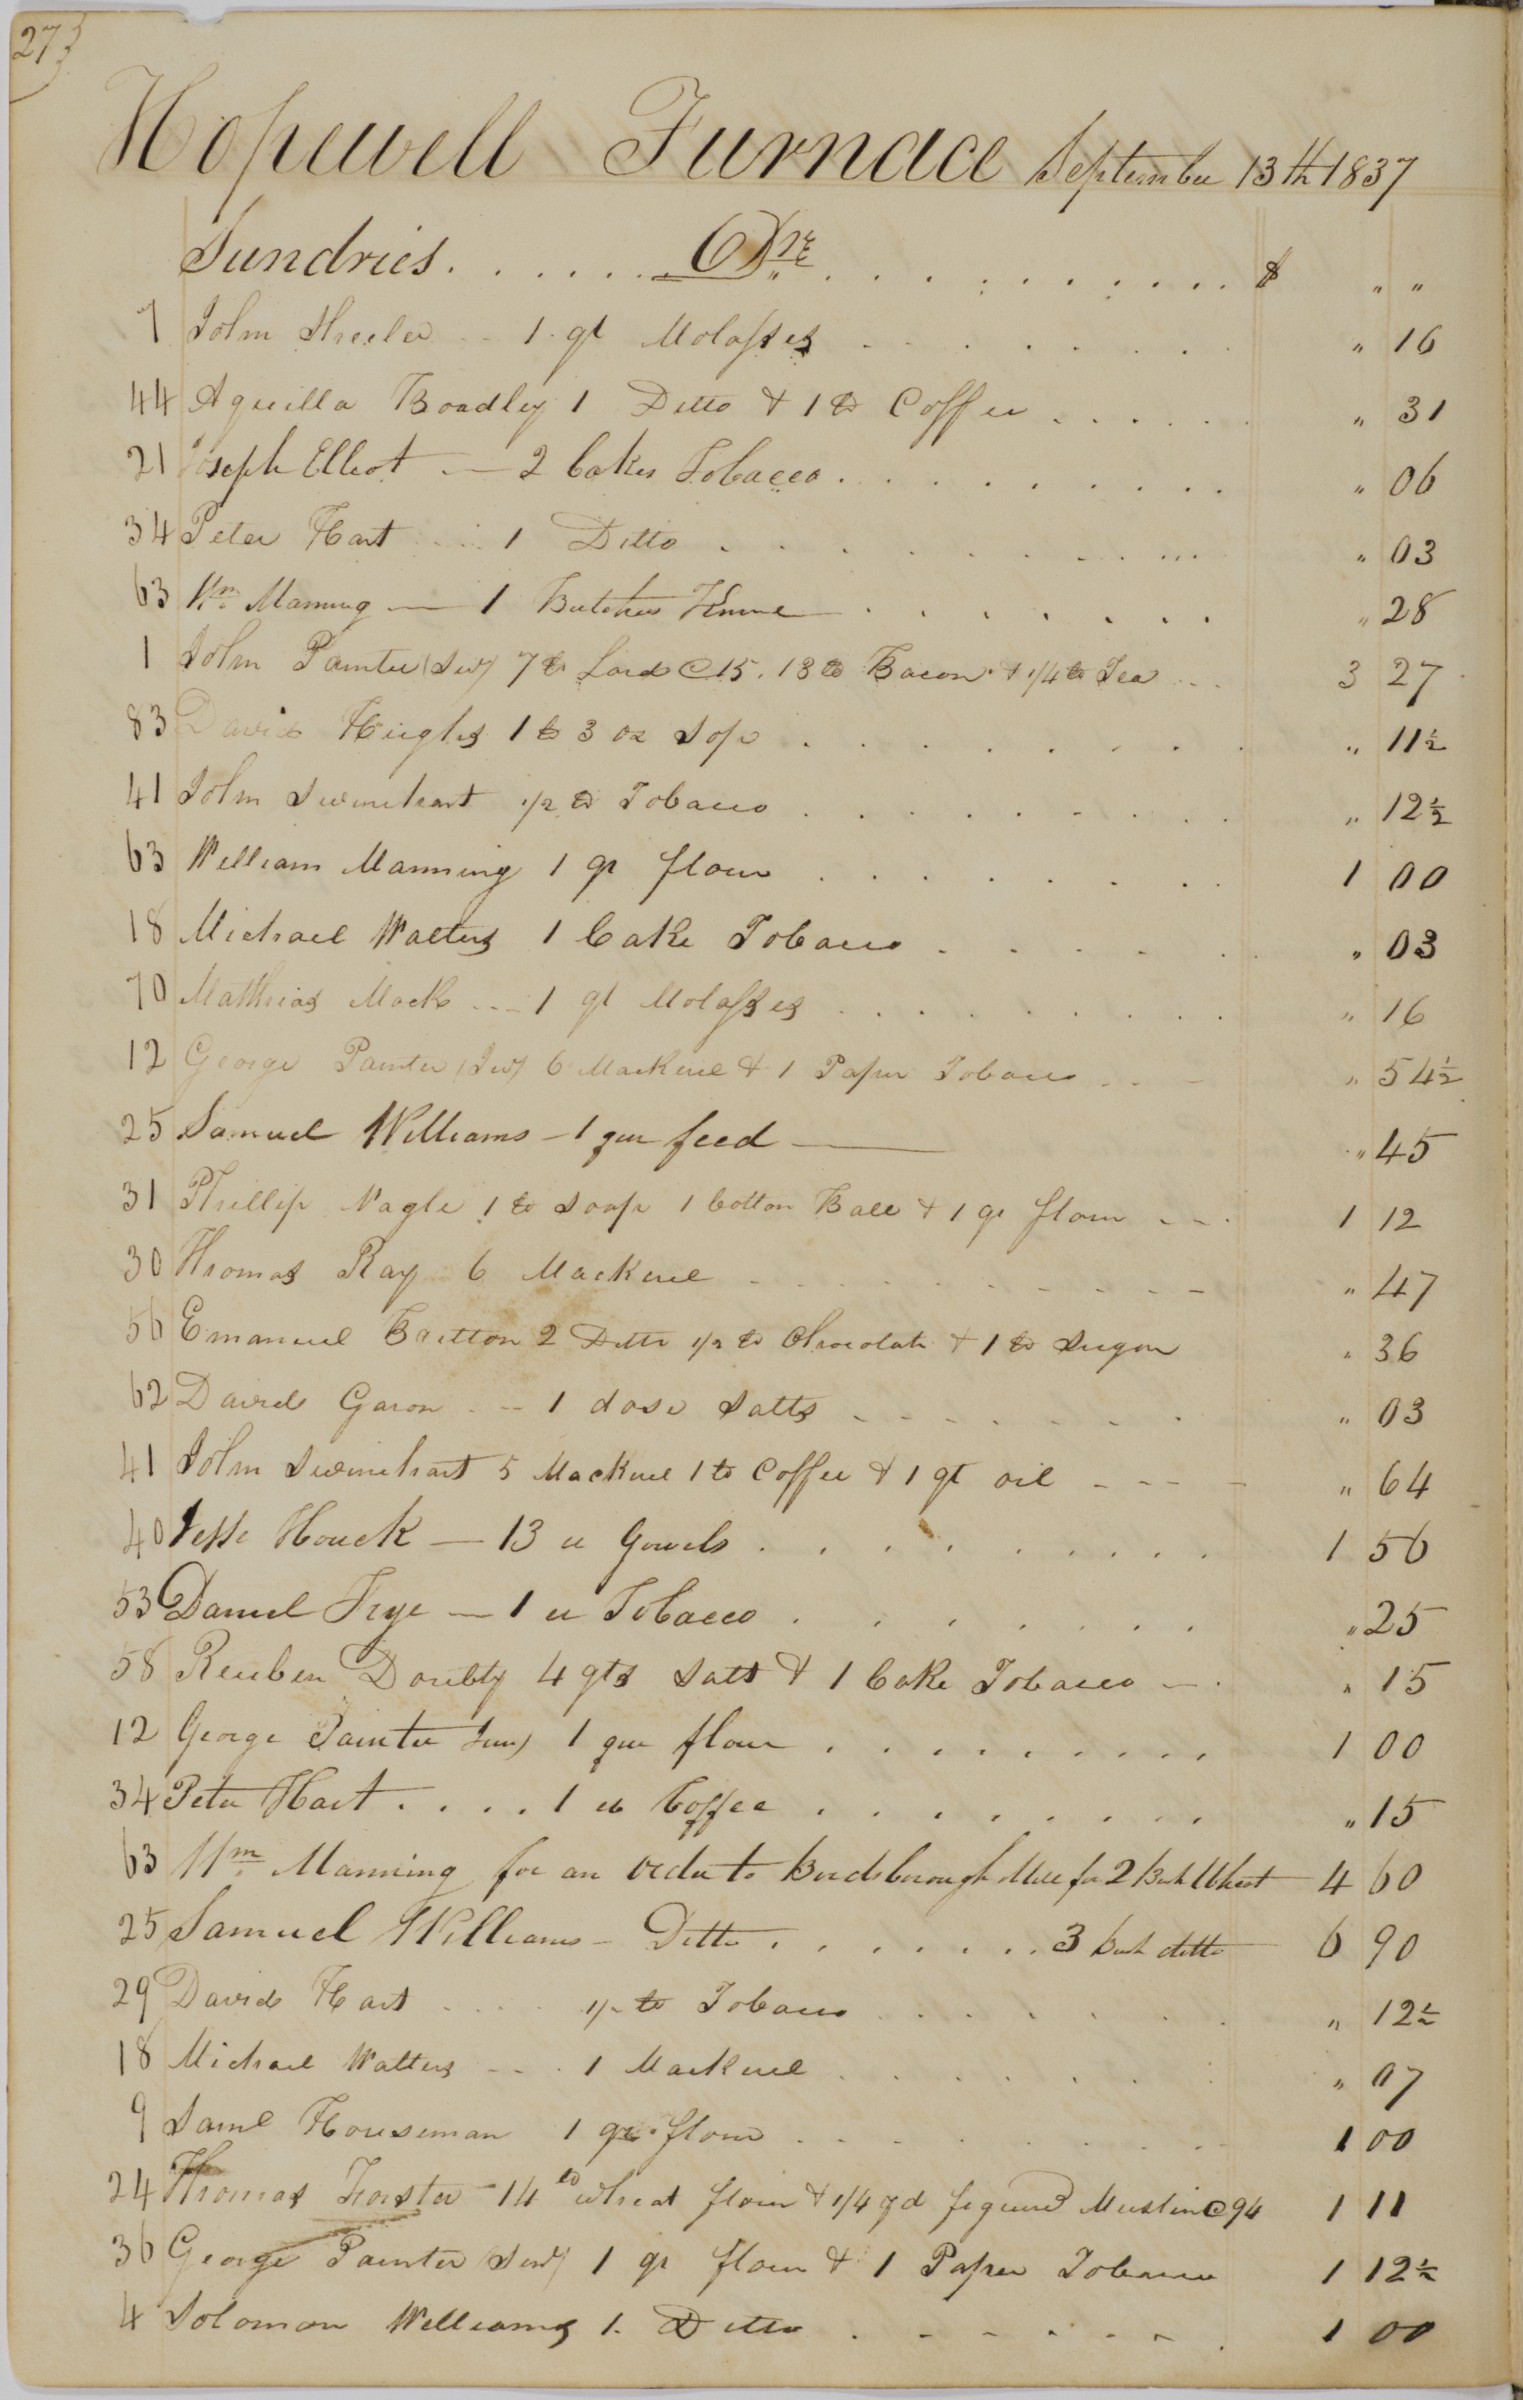 273
Hopewell Furnace September 13th 1837
Sundries . . . . . . Drs . . . . . . . . . . $ " "
7 John Sheeler -- 1 qt Molasses . . . . . . " 16
44 Aquilla Boadley 1 Ditto & 1 lb Coffee . . . . . . " 31
21 Joseph Elliot — 2 Cakes Tobacco . . . . . . . " 06
34 Peter Hart . . . 1 Ditto . . . . . . . . " 03
63 Wm Manning — 1 Butcher Knive . . . . . . " 28
1 John Painter 7 lb Lard @ 15. 18 lb Bacon & 1/4 lb Tea . . . 3 27
83 David Hughs 1 lb 3 oz Sope . . . . . . . . " 11½
41 John Swinehart 1/2 lb Tobacco . . . . . . . . " 12½
63 William Manning 1 qr flour . . . . . . . 1 00
18 Michael Walters 1 Cake Tobacco . . . . . . " 03
70 Matthias Mock --- 1 qt Molasses . . . . . . . " 16
12 George Painter 6 Mackerel & 1 Paper Tobacco . . - " 54½
25 Samuel Williams - 1 qur feed — " 45
31 Phillip Nagle 1 lb Soape 1 Cotton Ball & 1 qr flour - - . 1 12
30 Thomas Ray 6 Mackerel - - - - - - - - " 47
56 Emanuel Britton 2 Ditto 1/2 lb Chocolate & 1 lb Sugar " 36
62 David Garon . -- 1 dose Salts - - - - - - . " 03
41 John Swinehart 5 Mackerel 1 lb Coffee & 1 qt oil - - - - " 64
40 Jesse Houck — 13 lb . . . . . . . . 1 56
53 Daniel Frye — 1 lb Tobacco . . . . . . . " 25
58 Reuben Doubty 4 qts Salt & 1 Cake Tobacco - . " 15
12 George Painter Jun 1 qur flour . . . . . . . . 1 00
34 Peter Hart . . . . 1 lb Coffee . . . . . . . " 15
63 Wm Manning for an order to Birdsborough Mill for 2 Bush Wheat 4 60
25 Samuel Williams - Ditto . . . . . . . 3 bush ditto 6 90
29 David Hart . . . . 1/2 lb Tobacco . . . . . . " 12½
18 Michael Walters - - . 1 Mackerel . . . . . . " 07
9 Saml Houseman 1 qr flour . . . . . . . 1 00
24 Thomas Forster - 14 lb wheat flour & 1/4 yd figured Muslin @ 94 1 11
36 George Painter 1 qr flour & 1 Paper Tobacco 1 12½
4 Solomon Williams 1. Ditto . - - - - - . 1 00